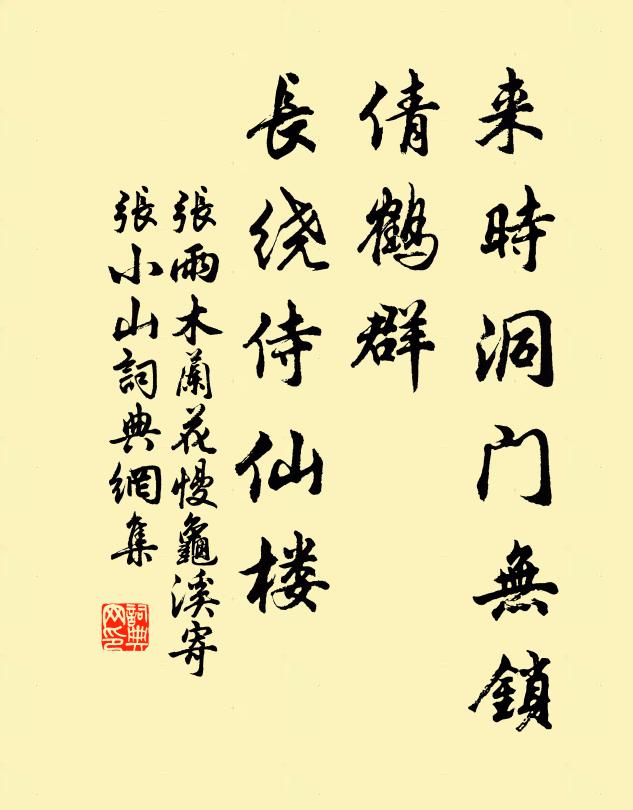 来時洞门無鎖
倩鹤群
長绕侍仙楼
張雨木蘭花慢龜溪寄
張小山詞典網集
詞典网印